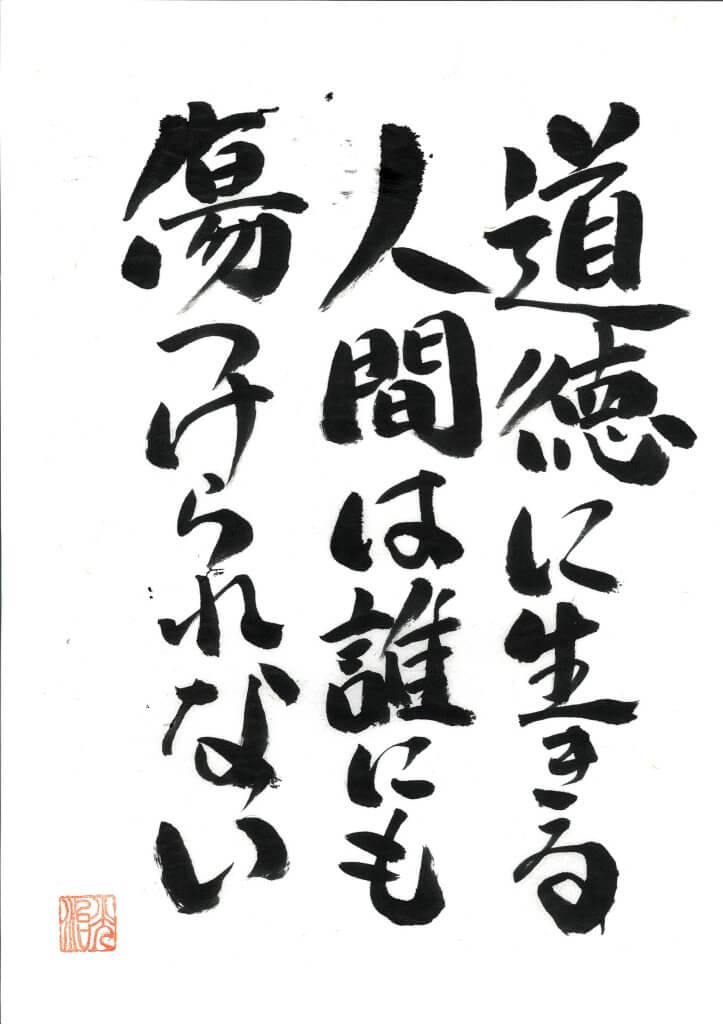 道徳に生きる
人間は誰にも
傷つけられない